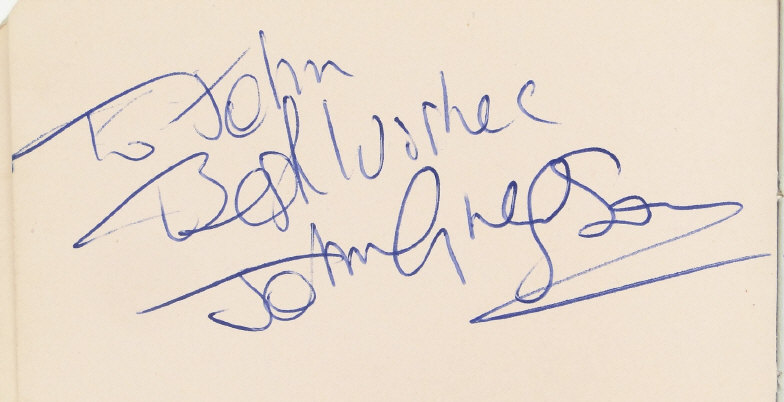 To John
Best Wishes
John Gregson